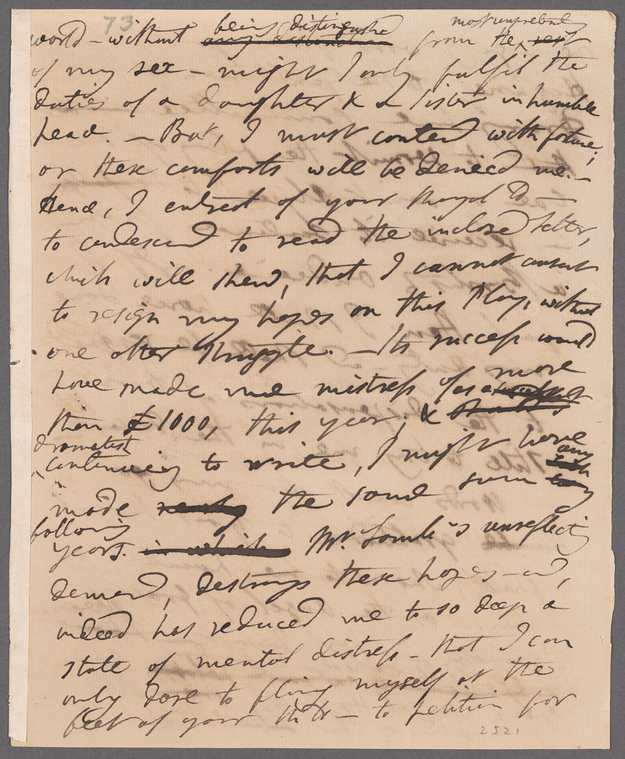 73
being distinguishd most unpretending
world – without from the
of my sex – might I only fulfil the
duties of a daughter & a sister in humble
head. – But, I must contend with fortune,
or these comforts will be denied me. –
Hence, I entreat of your Royal
to condescend to read the inclosed letter,
which will shew, that I cannot consent
to resign my hopes on this Play, without
one other struggle. – Its success would
have made me mistress of more
than £1000, this year; &
dramatist
continuing to write, I might have
made the same sum any
following
years. in which Mr. unreflecting
demand, destroys these hopes – and,
indeed has reduced me to so deep a
state of mental distress – that I can
only dare to fling myself at the
feet of your – to petition for
2521